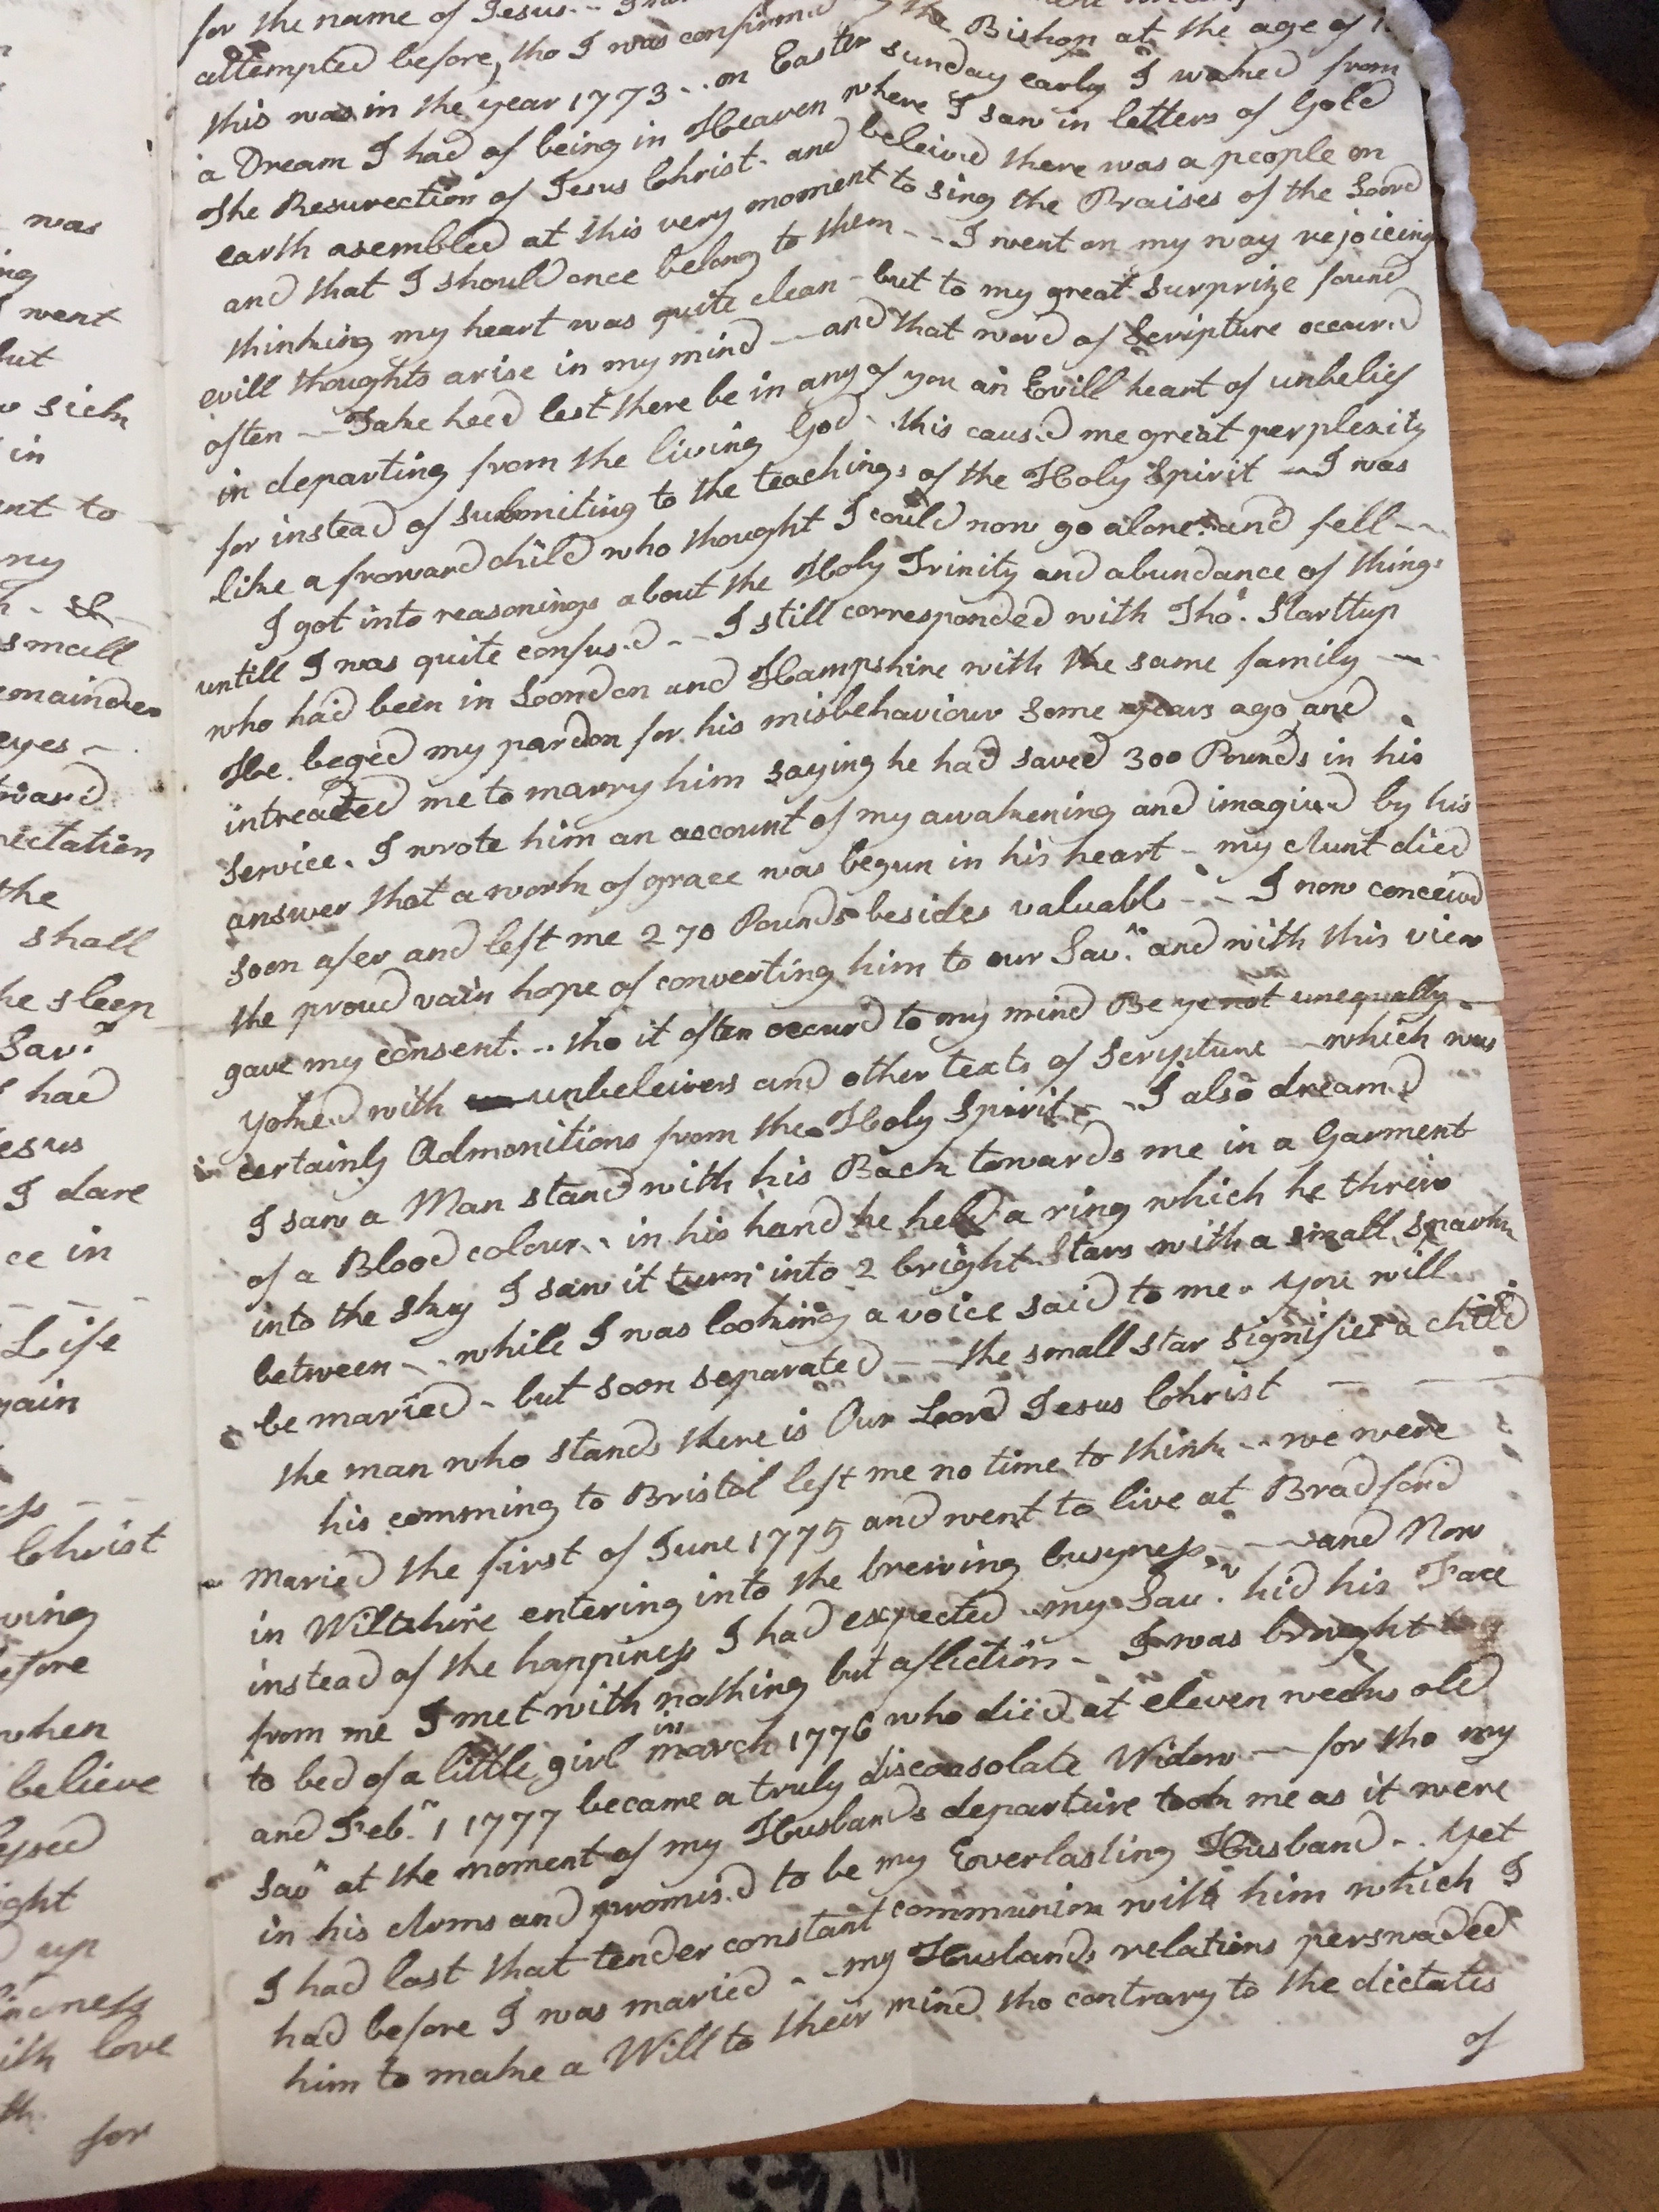 was
ng
went
but
sick
in
nt to
ny
small
remainder
eyes -
ward
ectation
the
shall
he sleep
Sav.r
I had
esus
I dare
ce in
Life
gain
Christ
ving
efore
when
believe
essed
ight
up
ness
ith love
for
for the name of Jesus --
attempted before, tho I was confirmed by the Bishop at the age of
this was in the year 1773 -- on Easter Sunday early I waked from
a Dream I had of being in Heaven where I saw in letters of Gold
The Resurection of Jesus Christ - and beleived there was a people on
earth asembled at this very moment to sing the Praises of the Loord
and that I should once belong to them -- I went on my way rejoicing
thinking my heart was quite clean - but to my great surprize found
evill thoughts arise in my mind -- and that word of Scripture occur.d
often -- Take heed lest there be in any of you an Evill heart of unbelief
in departing from the living God -- this caus.d me great perplexity
for instead of submiting to the teachings of the Holy Spirit -- I was
like a froward child who thought I could now go alone and fell --
I got into reasonings about the Holy Trinity and abundance of things
untill I was quite confus.d -- I still corresponded with Tho.s Starttup
who had been in Loondon and Hampshire with the same family --
He beged my pardon for his misbehaviour some years ago and
intreated me to marry him saying he had saved 300 Pounds in his
Service. I wrote him an account of my awakening and imagin.d by his
answer that a work of grace was begun in his heart - my Aunt died
soon afer and left me 270 Pounds besides valuabls -- I now conceivd
the proud vain hope of converting him to our Sav.r and with this view
gave my consent. -- tho it often occurd to my mind Be ye not unequally
yoked with unbeleivers and other texts of Scripture -- which was
certainly Admonitions from the Holy Spirit -- I also dream.d
I saw a Man stand with his Back towards me in a Garment
of a Blood colour -- in his hand he held a ring which he threw
into the sky I saw it turn into 2 bright Stars with a small spark
between -- while I was looking a voice said to me - you will
be maried - but soon separated -- the small star signifies a child
the man who stands there is Our Loord Jesus Christ
his comming to Bristol left me no time to think -- we were
maried the first of June 1775 and went to live at Bradford
in Wiltshire entering into the brewing busyness -- and Now
instead of the happiness I had expected my Sav.r hid his Face
from me I met with nothing but afliction - I was brought
to bed of a little girl in march 1776 who died at eleven weeks old
and Feb.r 1 1777 became a truly disconsolate Widow -- for tho my
Sav.r at the moment of my Husbands departure took me as it were
in his Arms and promis.d to be my Everlasting Husband -- yet
I had lost that tender constant communion with him which I
had before I was maried -- my Husbands relations perswaded
him to make a Will to their mind tho contrary to the dictates
of